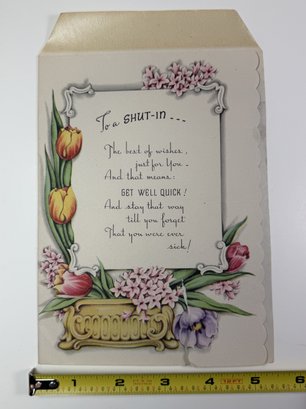 To a SHUT-IN ---
The best of wishes,
just for You -
And that means:
GET WELL QUICK!
And stay that way
till you forget
That you were ever
sick!
1 2 3 4 5 6